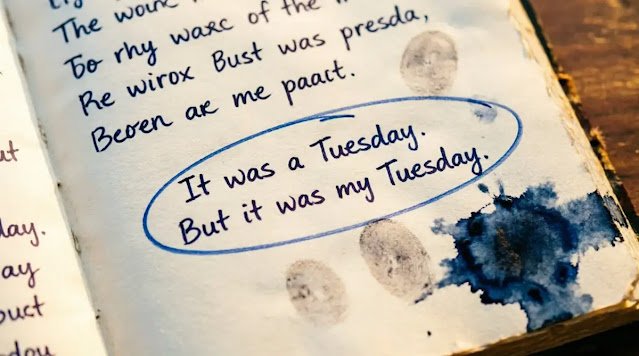 The
To rhy waxc of the
Re wirox Bust was presda,
Beoen are me paait.
It was a Tuesday.
But it was my Tuesday.
ut
day.
ay
ouct